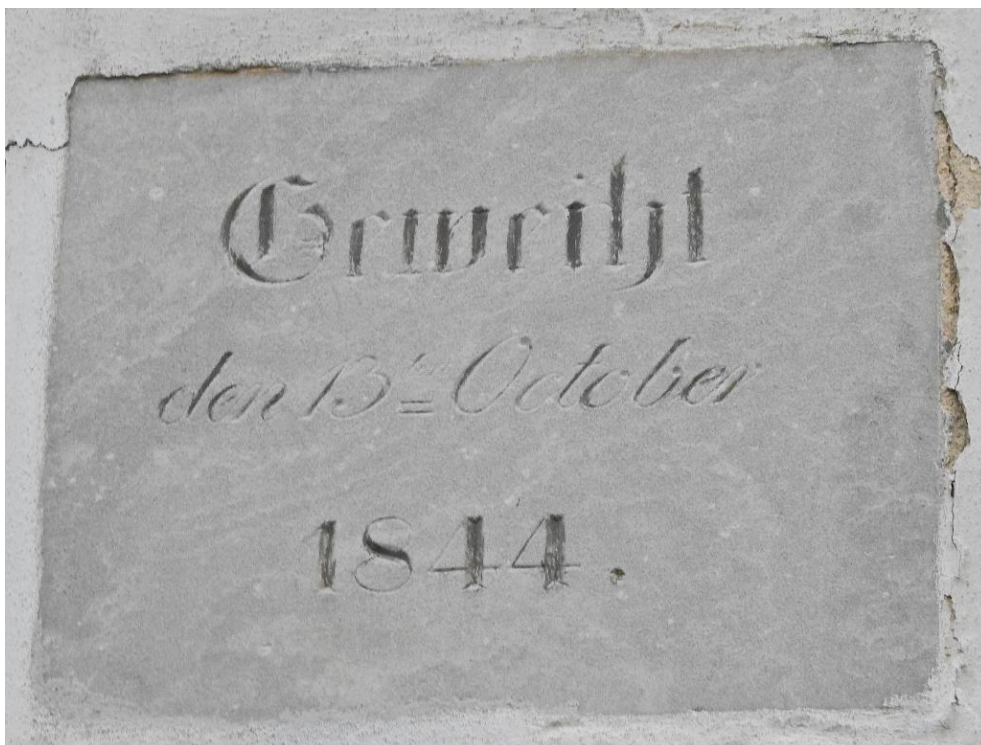 Geweiht
den 13ten October
1844.